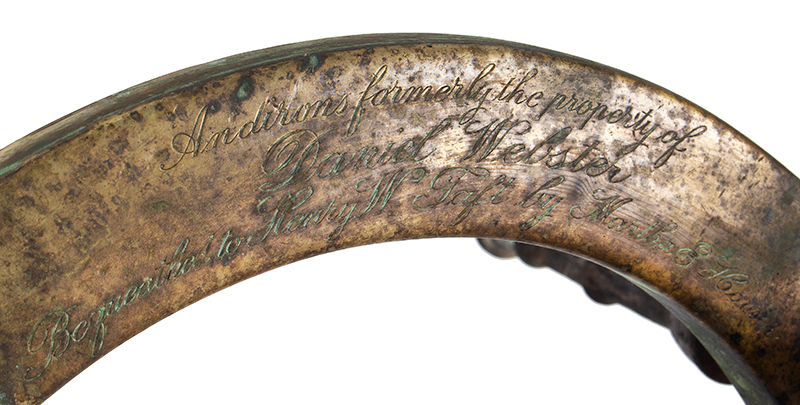 Andirons formerly the property of
Daniel Webster
Bequeathed to Henry W Taft by E